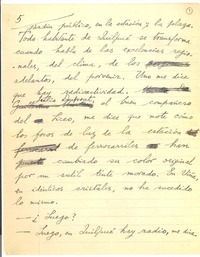 5
1
jardín público, en la estación y la plaza.
Todo habitante de Quilpué se transforma
cuando habla de las excelencias regio-
nales, del clima, de los
adelantos, del porvenir. Uno me dice
que hay radioactividad.
el buen compañero
del Liceo, me dice que note cómo
los focos de luz de la estación
de ferrocarriles han
cambiado su color original
por un sutil tinte morado. En Viña,
en idénticos cristales, no ha sucedido
lo mismo.
— ¿Luego?
— Luego, en Quilpué hay radio, me dice.